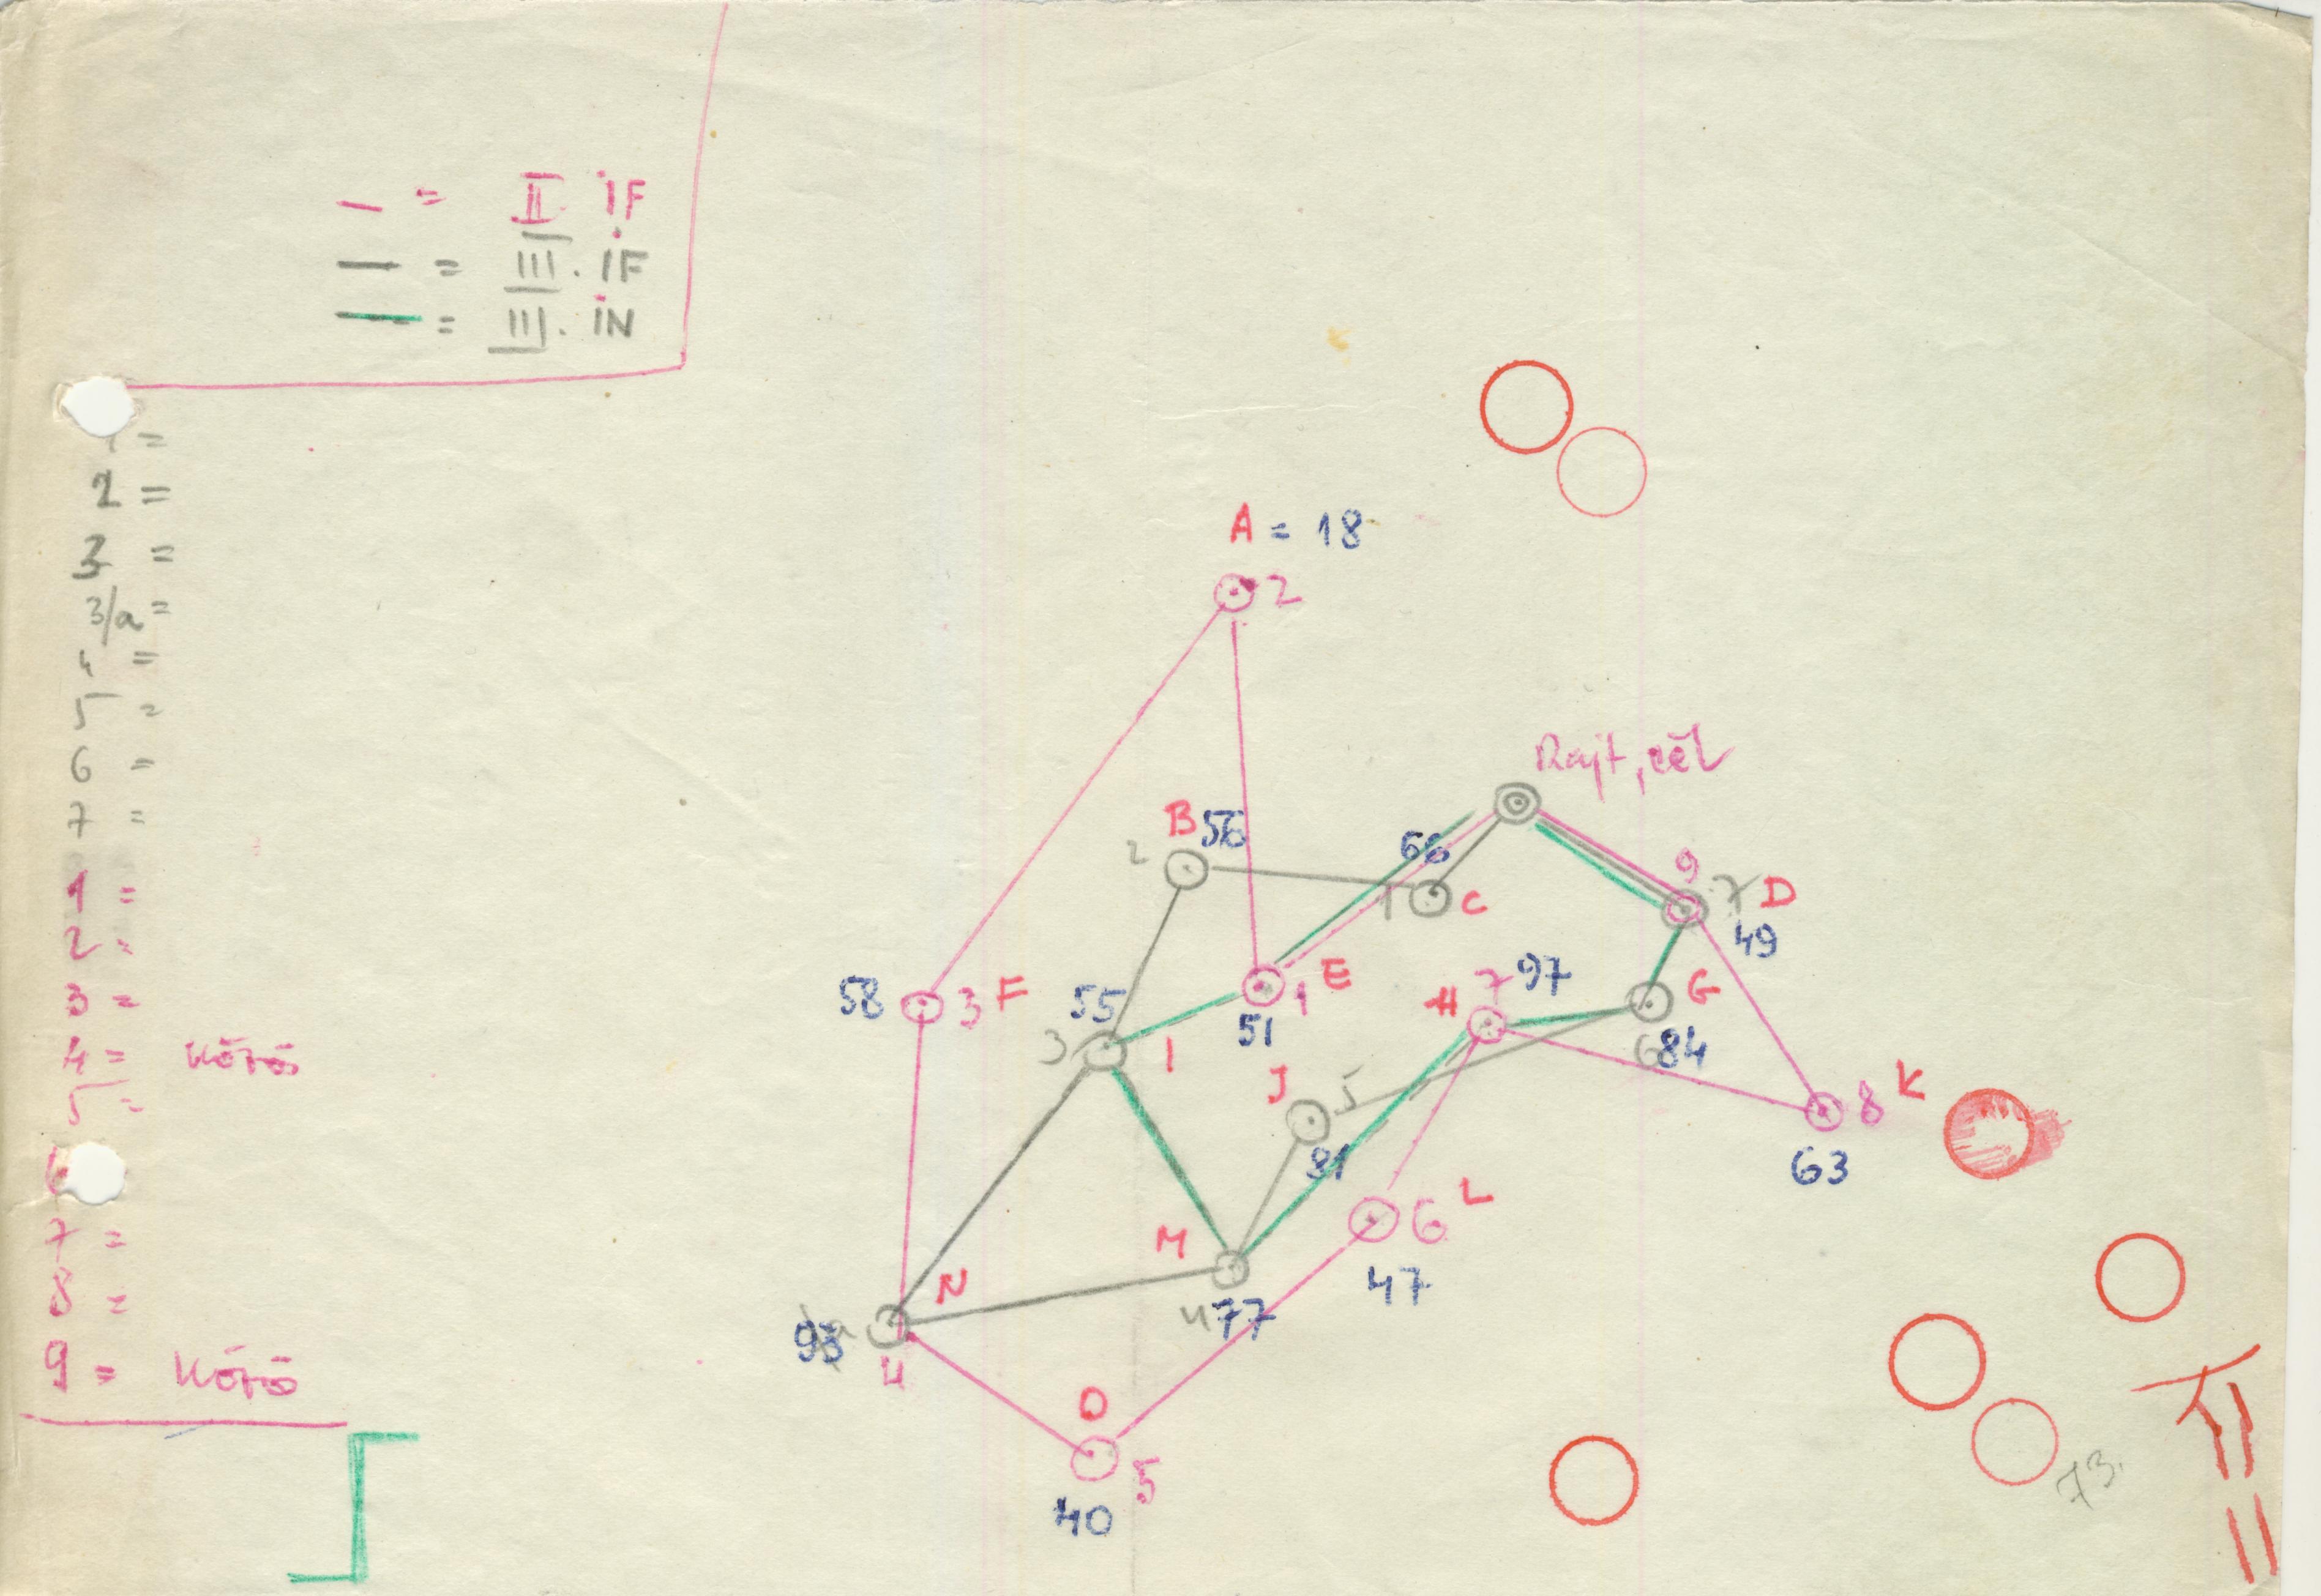 — = II. IF
— = III. IF
— = III. IN
1 =
2 =
3 =
3/a =
4 =
5 =
6 =
7 =
1 =
2 =
3 =
4 = Kőrös
5 =
6
7 =
8 =
9 = Kőrös
A = 18
2
Rajt, cél
B 56
2
66
1 C
9
7 D
49
58 3 F
55
3 I
1 E
51
H 7 97
G
6 84
J 5
81
8 K
63
6 L
47
M
4 77
N
93
4
O
5
40
73.